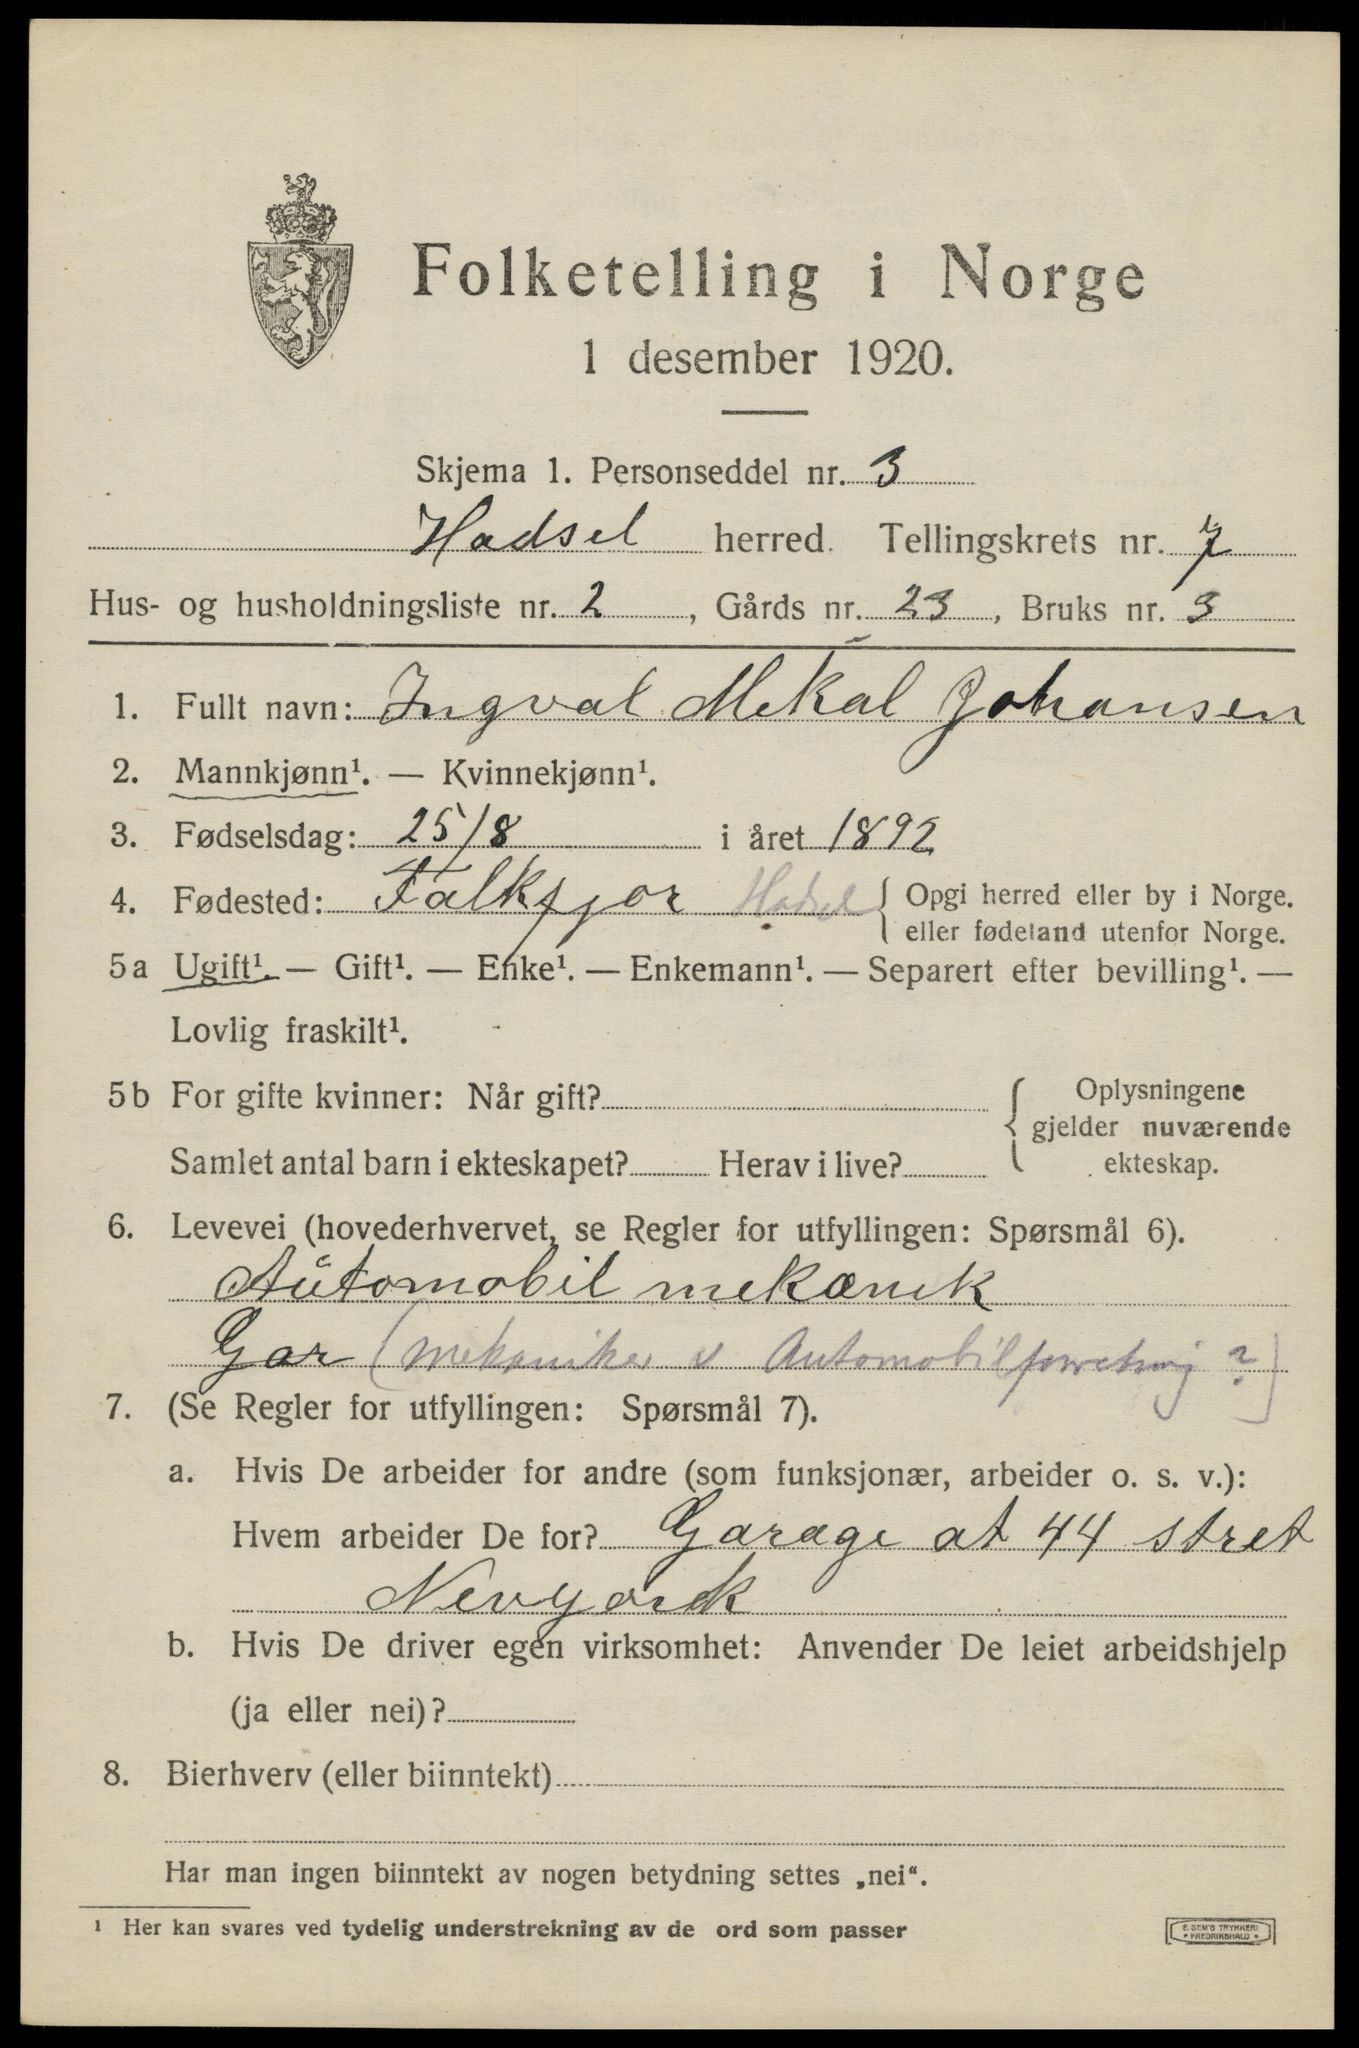 Folketelling i Norge
1 desember 1920.
Skjema 1. Personseddel nr. 3
Hadsel herred. Tellingskrets nr. 7
Hus- og husholdningsliste nr. 2, Gårds nr. 23, Bruks nr. 3
1. Fullt navn: Ingval Mekal Johansen
2. Mannkjønn¹. — Kvinnekjønn¹.
3. Fødselsdag: 25/8 i året 1892
4. Fødested: Falkfjor Hadsel { Opgi herred eller by i Norge.
eller fødeland utenfor Norge.
5a Ugift¹. — Gift¹. — Enke¹. — Enkemann¹. — Separert efter bevilling¹. —
Lovlig fraskilt¹.
5b For gifte kvinner: Når gift?
Samlet antal barn i ekteskapet? Herav i live?
Oplysningene
gjelder nuværende
ekteskap.
6. Levevei (hovederhvervet, se Regler for utfyllingen: Spørsmål 6).
Automobil mekanik
Gar (mekaniker v Automobilforretning ?)
7. (Se Regler for utfyllingen: Spørsmål 7).
a. Hvis De arbeider for andre (som funksjonær, arbeider o. s. v.):
Hvem arbeider De for? Garage at 44 stret
Nevyork
b. Hvis De driver egen virksomhet: Anvender De leiet arbeidshjelp
(ja eller nei)?
8. Bierhverv (eller biinntekt)
Har man ingen biinntekt av nogen betydning settes „nei“.
¹ Her kan svares ved tydelig understrekning av de ord som passer
E. SEM'S TRYKKERI
FREDRIKSHALD